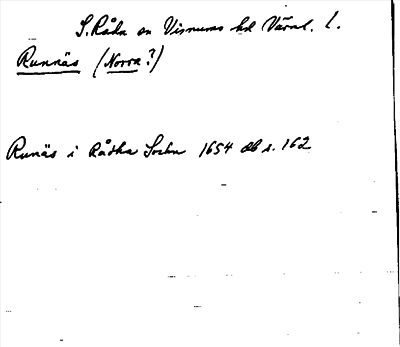 S. Råda sn Visnums hd Värml. l.
Runnäs (Norra?)
Runäs i Rådha Sochn 1654 db s. 162